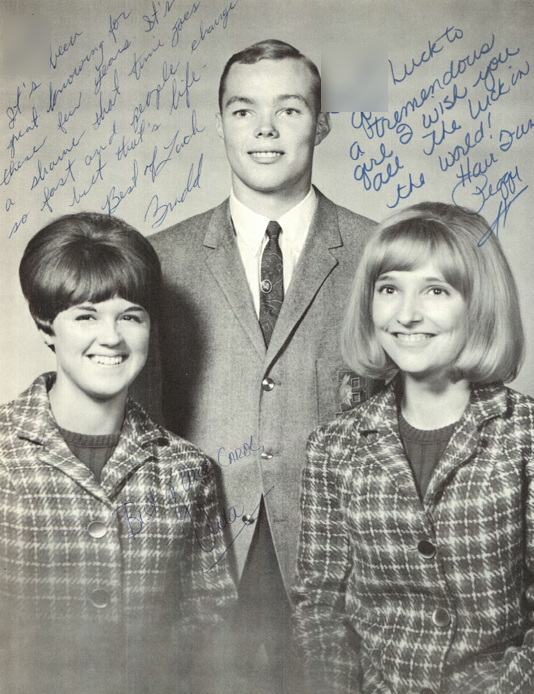 It's been
great knowing for
these few years. It's
a shame that time goes
so fast and people change
but that's life.
Best of Luck
Budd
Luck to
a tremendous
girl I wish you
all the luck in
the world!
Have Fun
Peggy
Best of luck Carol